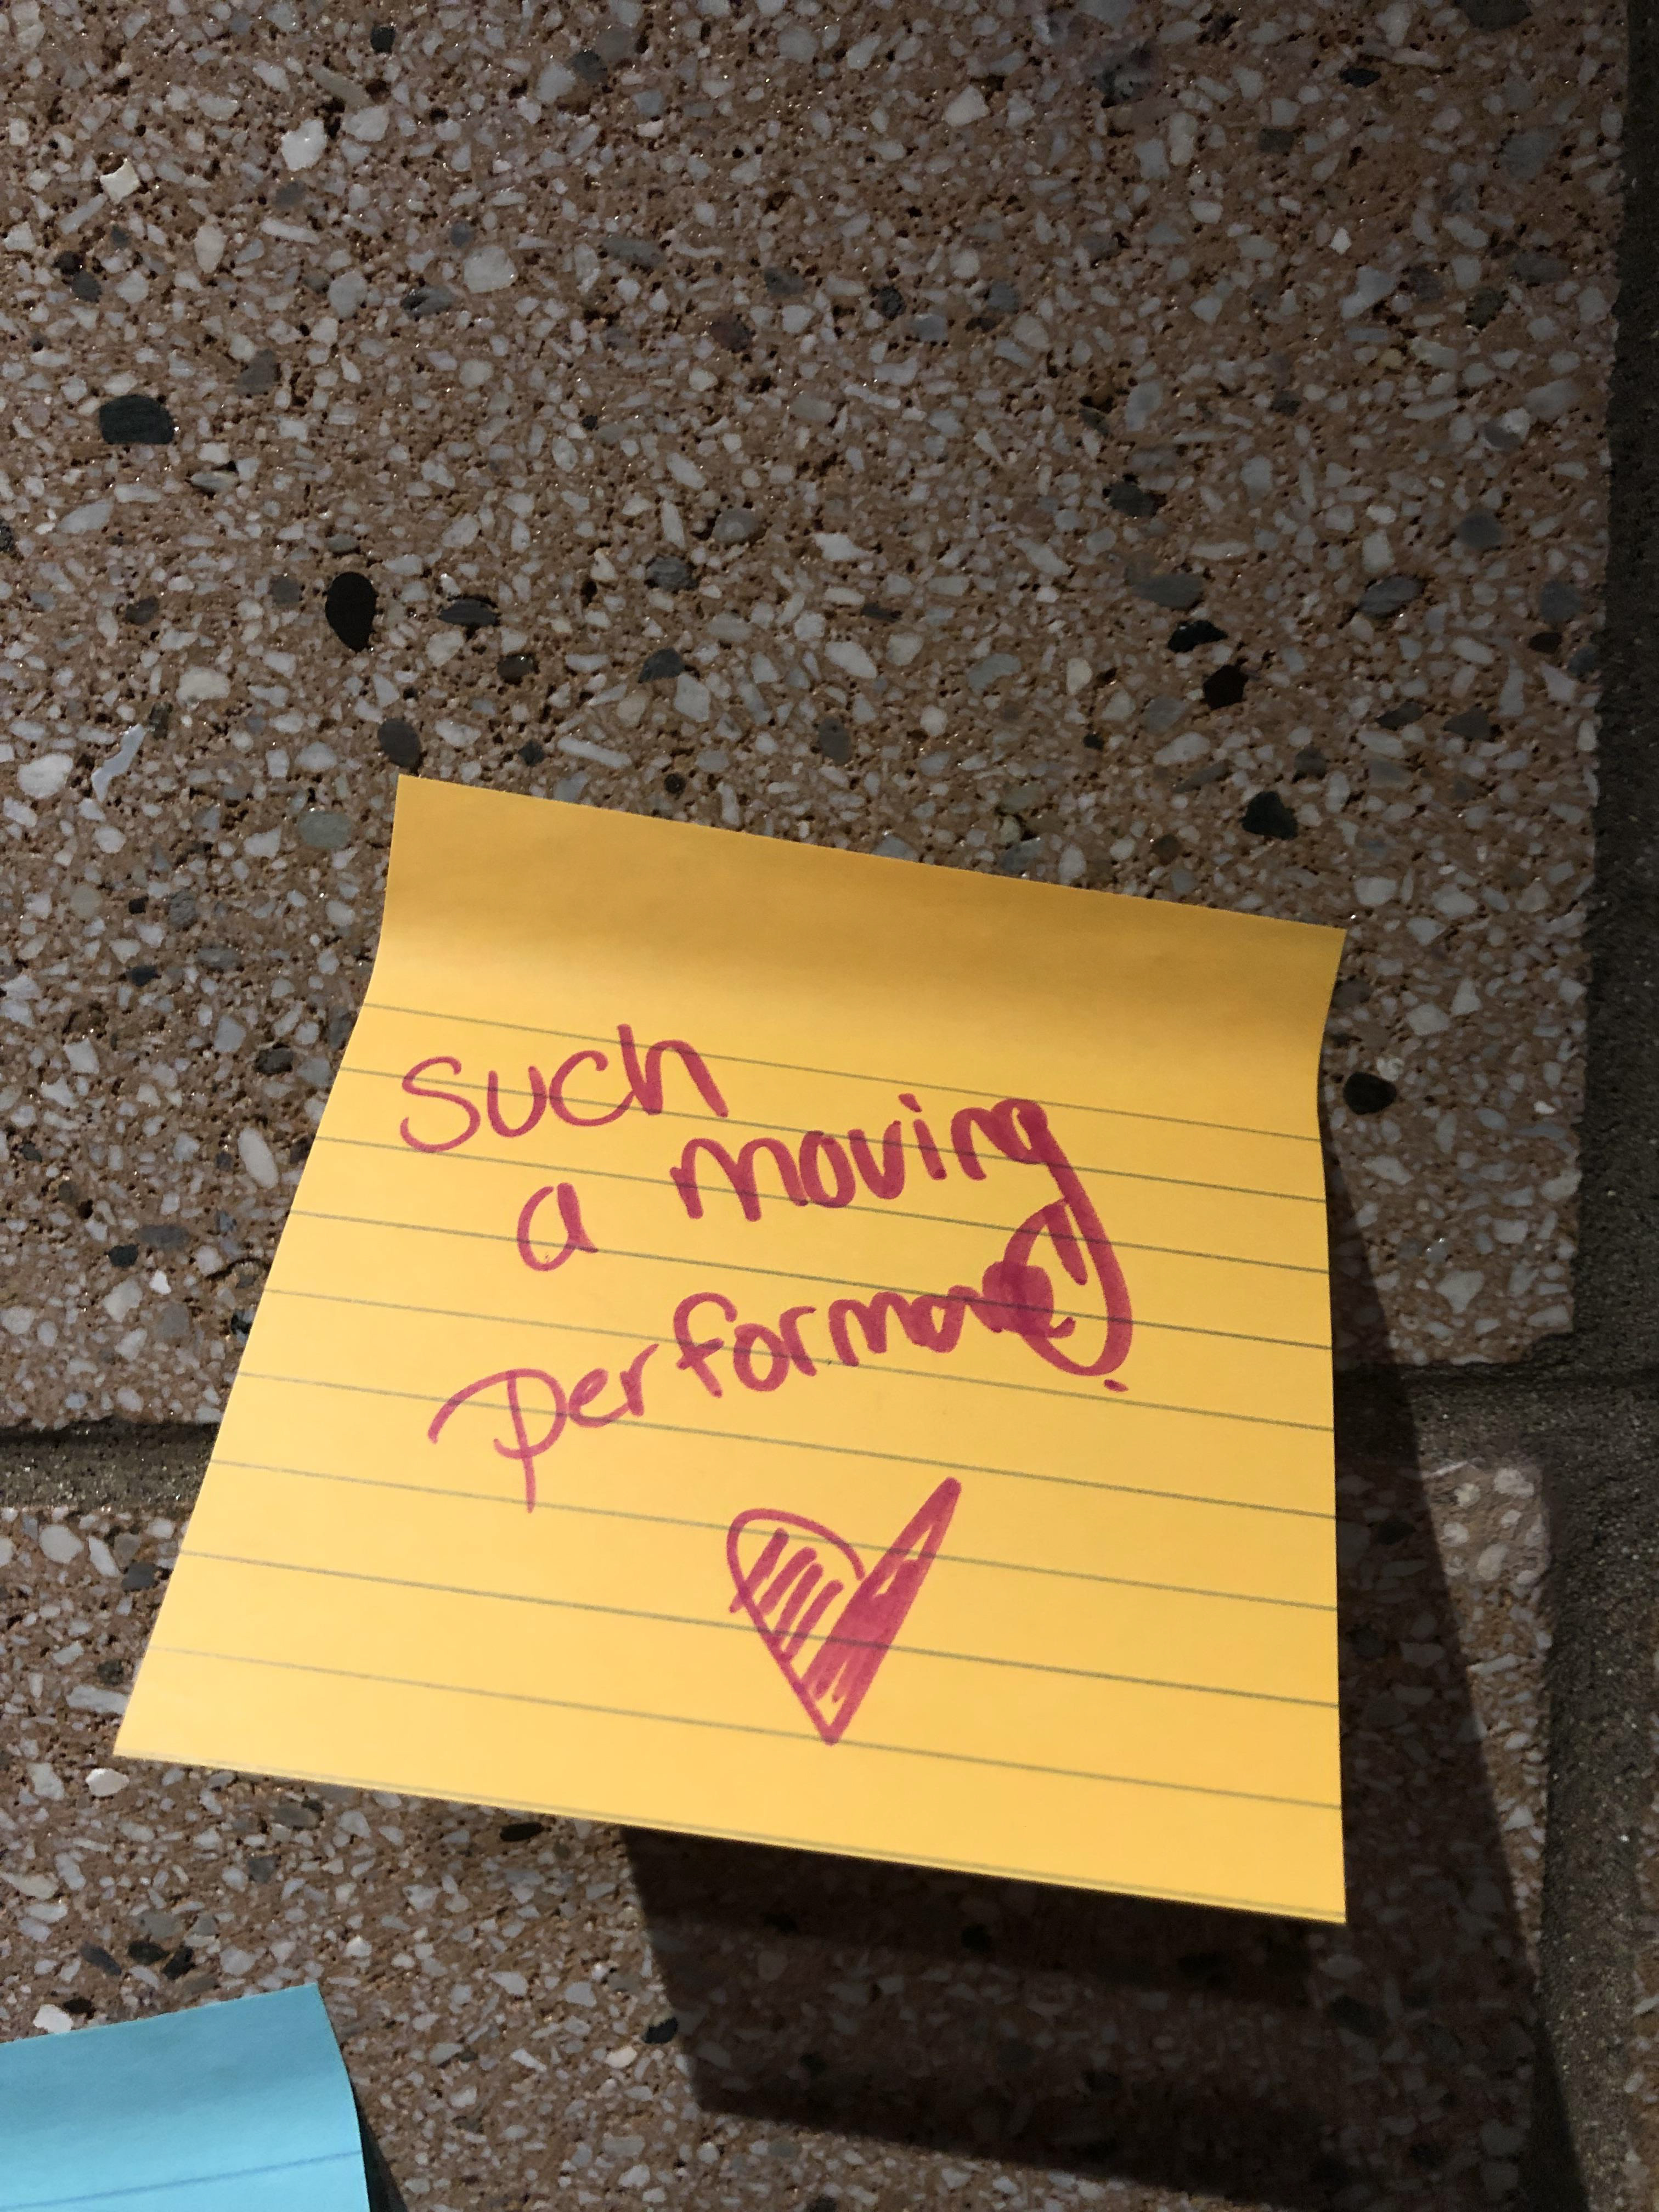 such
a moving
performance!